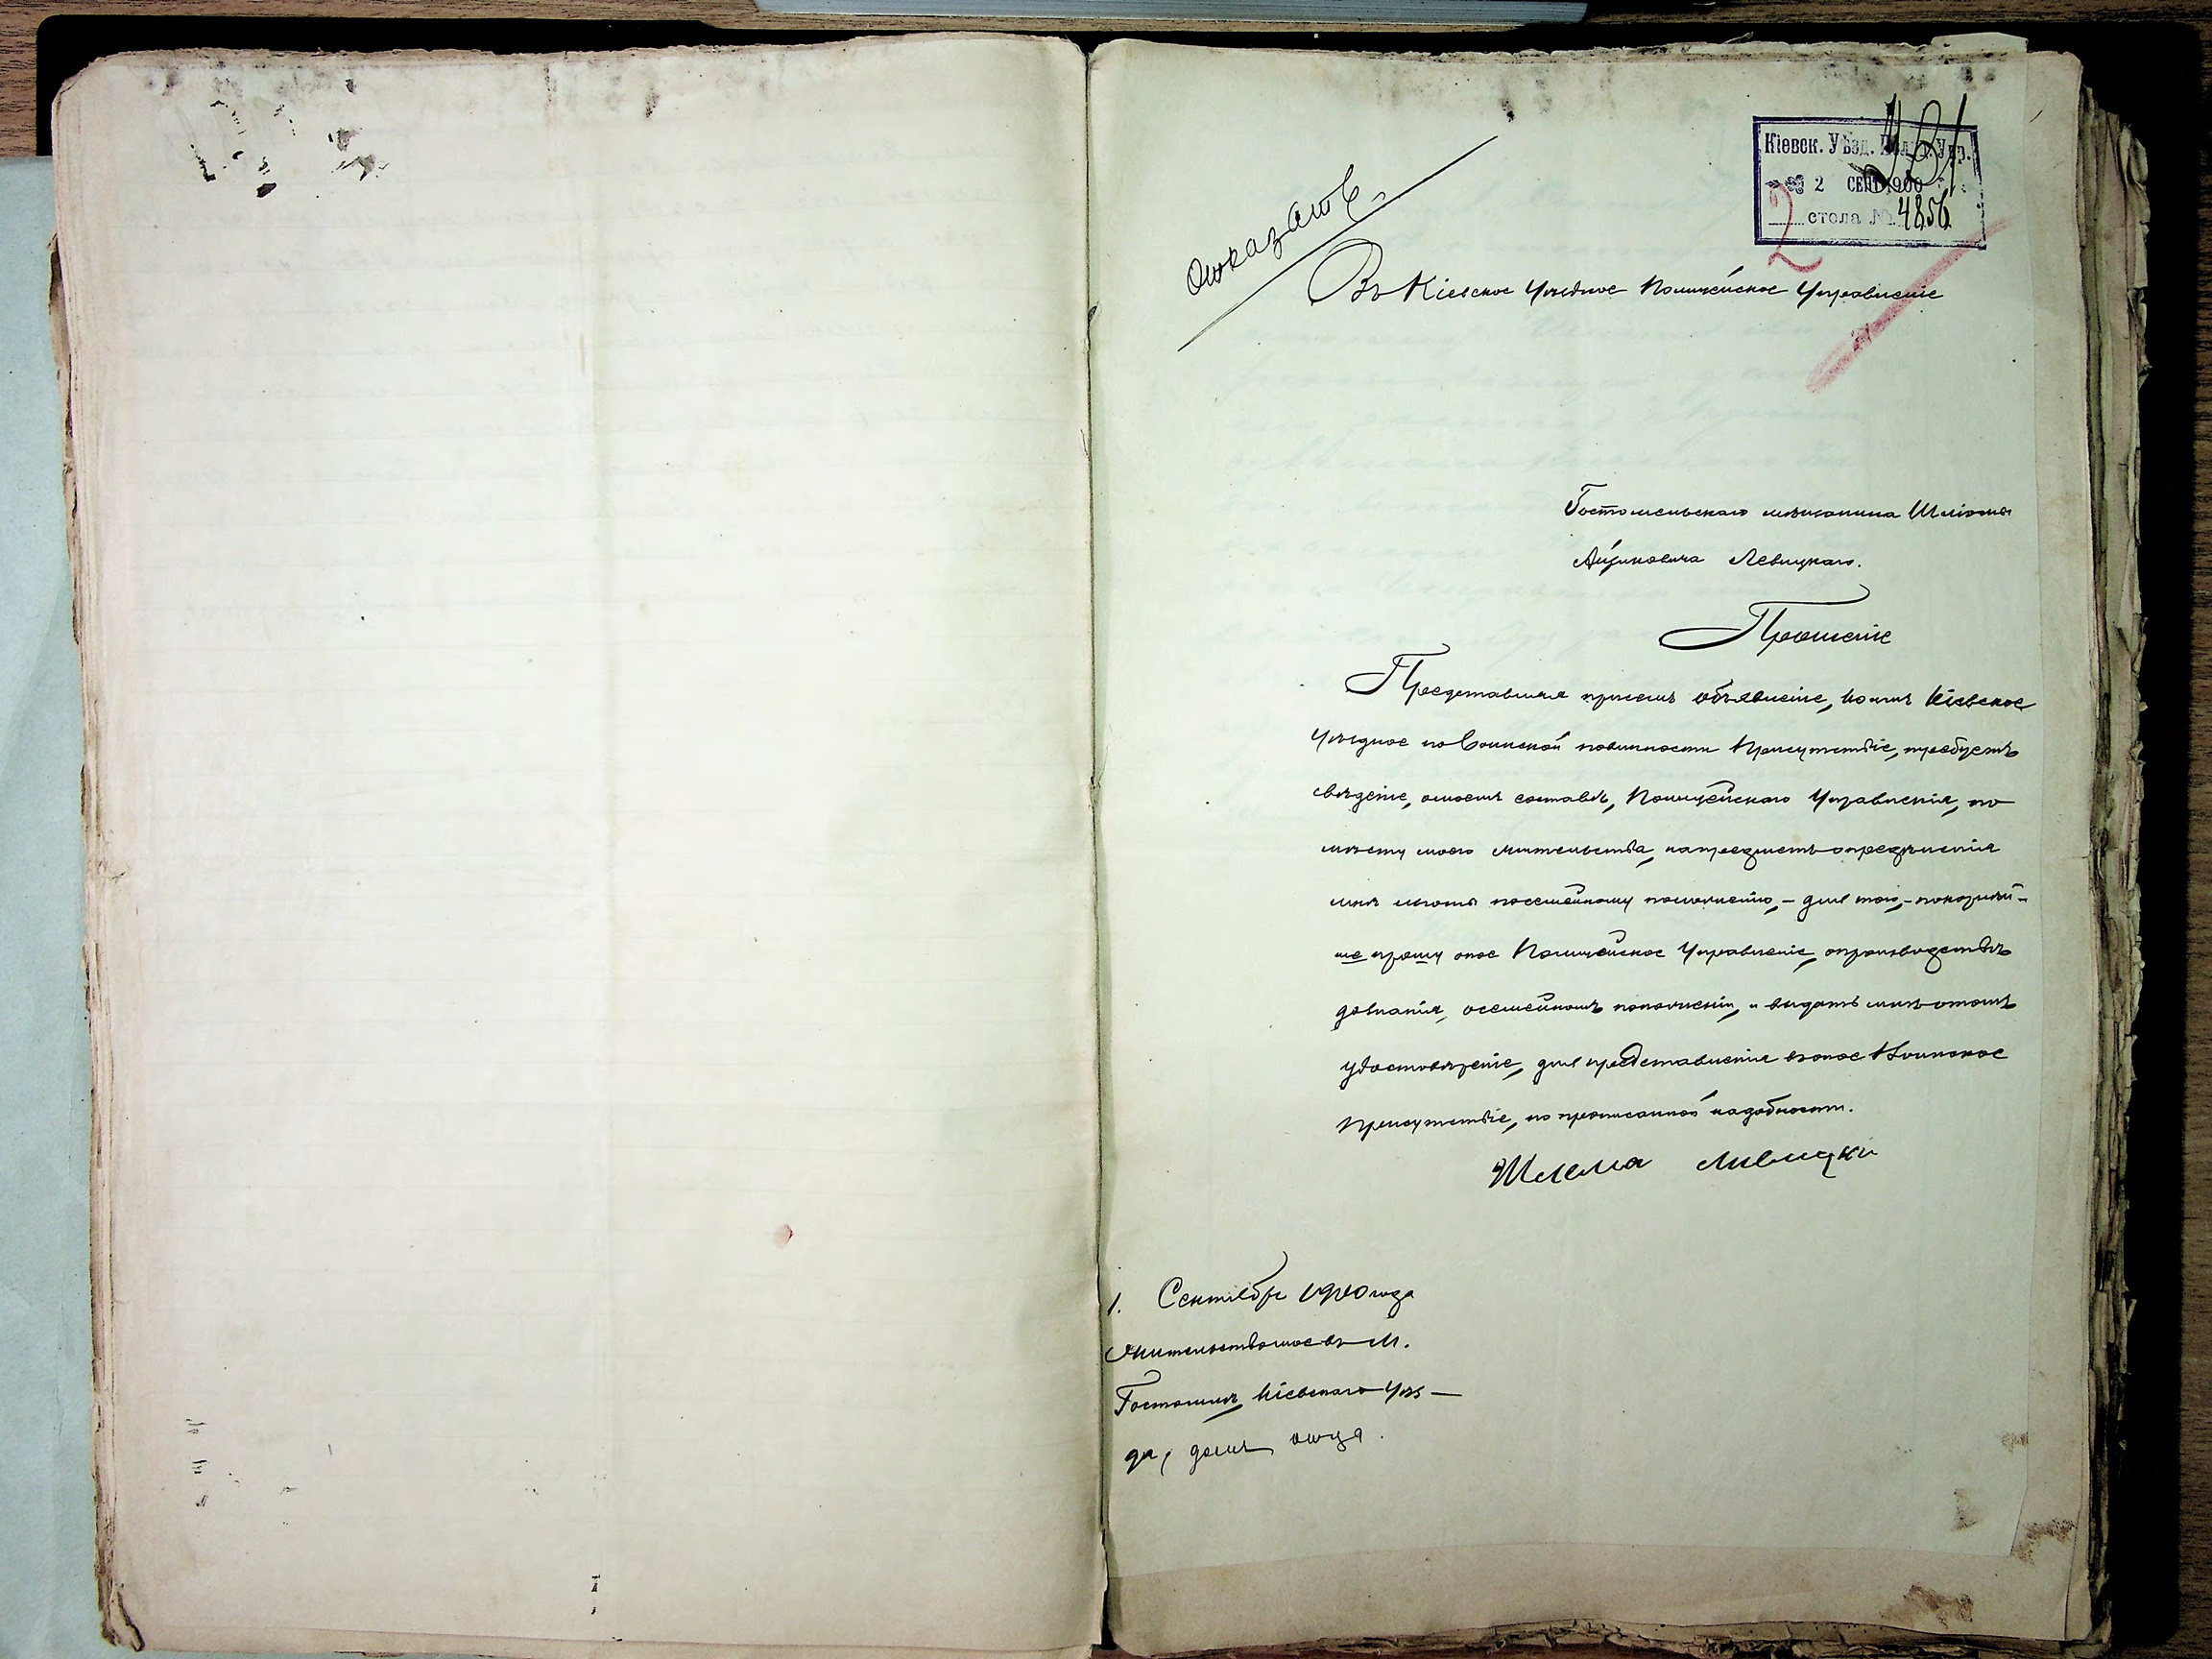 Кіевск. Уѣзд. Пол. Упр.
2 СЕНТ. 1900
стола № 4856
431
2
Отказать.
Въ Кіевское Уѣздное Полицейское Управленіе
Гостомельскаго мѣщанина Шліомы
Ицковича Левицкаго.
Прошеніе
Представляя присемъ объявленіе, коимъ Кіевское
Уѣздное по Воинской повинности Присутствіе, требуетъ
свѣдѣніе, омоемъ составѣ, Полицейскаго Управленія, по
мѣсту моего жительства, напредметъ опредѣленія
мнѣ льготы посемейному положенію, - для того, - покорнѣй-
ше прошу оное Полицейское Управленіе, опроизводствѣ
дознанія, осемейномъ положеніи, и выдать мнѣ отомъ
удостовѣреніе, для представленія воное Воинское
Присутствіе, по прописанной надобности.
Шлема Ливицки
1. Сентября 1900 года
Жительство мое въ М.
Гостомлѣ, Кіевскаго Уѣз-
да, домъ отца.